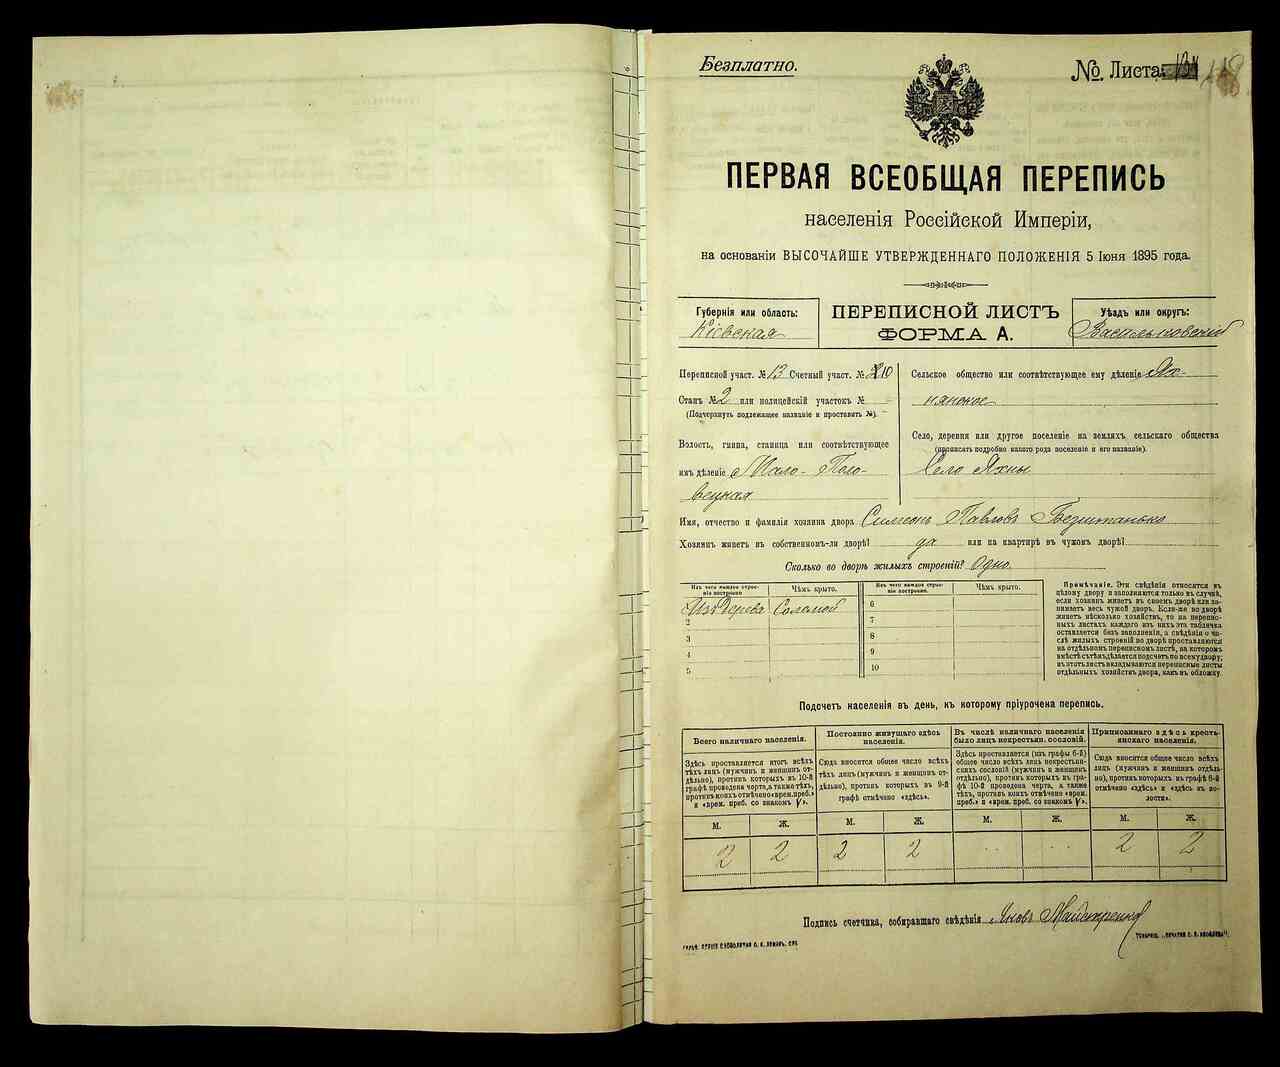 Безплатно.
№. Листа: 134 118
ПЕРВАЯ ВСЕОБЩАЯ ПЕРЕПИСЬ
населенія Россійской Имперіи,
на основаніи ВЫСОЧАЙШЕ УТВЕРЖДЕННАГО ПОЛОЖЕНІЯ 5 Іюня 1895 года.
Губернія или область:
Кіевская
ПЕРЕПИСНОЙ ЛИСТЪ
ФОРМА А.
Уѣздъ или округъ:
Васильковскій
Переписной участ. № 13 Счетный участ. № 10
Станъ № 2 или полицейскій участокъ № -
(Подчеркнуть подлежащее названіе и проставить №).
Волость, гмина, станица или соотвѣтствующее
имъ дѣленіе Мало-Поло-
вецкая
Сельское общество или соотвѣтствующее ему дѣленіе Ях-
нянское
Село, деревня или другое поселеніе на земляхъ сельскаго общества
(прописать подробно какого рода поселеніе и его названіе).
Село Яхны
Имя, отчество и фамилія хозяина двора Симеонъ Павловъ Безштанько
Хозяинъ живетъ въ собственномъ-ли дворѣ? да или на квартирѣ въ чужомъ дворѣ?
Сколько во дворѣ жилыхъ строеній? Одно.
Изъ чего каждое строе-
ніе построено
Чѣмъ крыто.
Изъ дерева Соломой
2
3
4
5
Изъ чего каждое строе-
ніе построено.
Чѣмъ крыто.
6
7
8
9
10
Примѣчаніе. Эти свѣдѣнія относятся къ
цѣлому двору и заполняются только въ случаѣ,
если хозяинъ живетъ въ своемъ дворѣ или за-
нимаетъ весь чужой дворъ. Если-же во дворѣ
живетъ нѣсколько хозяйствъ, то на перепис-
ныхъ листахъ каждаго изъ нихъ эта табличка
оставляется безъ заполненія, а свѣдѣнія о чи-
слѣ жилыхъ строеній во дворѣ проставляются
на отдѣльномъ переписномъ листѣ, на которомъ
вмѣстѣ съ тѣмъ дѣлается подсчетъ по всему двору;
въ этотъ листъ вкладываются переписные листы
отдѣльныхъ хозяйствъ двора, какъ въ обложку.
Подсчетъ населенія въ день, къ которому пріурочена перепись.
Всего наличнаго населенія.
Здѣсь проставляется итогъ всѣхъ
тѣхъ лицъ (мужчинъ и женщинъ от-
дѣльно), противъ которыхъ въ 10-й
графѣ проведена черта, а также тѣхъ,
противъ коихъ отмѣчено «врем. преб.»
и «врем. преб. со знакомъ V».
Постоянно живущаго здѣсь
населенія.
Сюда вносится общее число всѣхъ
тѣхъ лицъ (мужчинъ и женщинъ от-
дѣльно), противъ которыхъ въ 9-й
графѣ отмѣчено «здѣсь».
Въ числѣ наличнаго населенія
было лицъ некрестьян. сословій.
Здѣсь проставляется (изъ графы 6-й)
общее число всѣхъ лицъ некрестьян-
скихъ сословій (мужчинъ и женщинъ
отдѣльно), противъ которыхъ въ гра-
фѣ 10-й проведена черта, а также
тѣхъ, противъ коихъ отмѣчено «врем.
преб.» и «врем. преб. со знакомъ V».
Приписаннаго здѣсь кресть-
янскаго населенія.
Сюда вносится общее число всѣхъ
лицъ (мужчинъ и женщинъ отдѣль-
но), противъ которыхъ въ графѣ 8-й
отмѣчено «здѣсь» и «здѣсь въ во-
лости».
М. Ж. М. Ж. М. Ж. М. Ж.
2 2 2 2 2 2
Подпись счетчика, собиравшаго свѣдѣнія Яковъ Майстренко